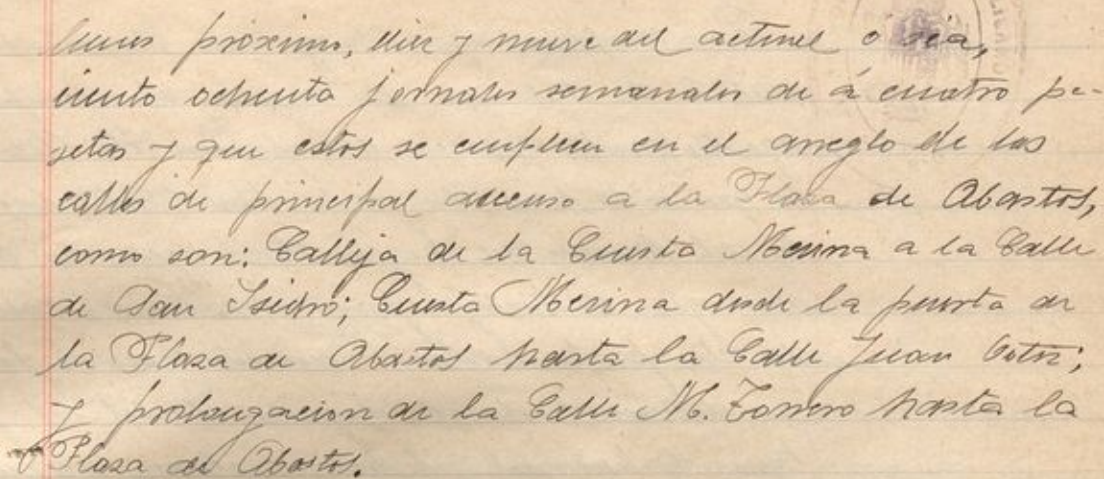 lunes próximo, diez y nueve del actual ó sea,
ciento ochenta jornales semanales de á cuatro pe-
setas y que estos se empleen en el arreglo de las
calles de principal acceso a la Plaza de Abastos,
como son: Calleja de la Cuesta Merina a la Calle
de San Isidro; Cuesta Merina desde la puerta de
la Plaza de Abastos hasta la Calle Juan
y prolongacion de la Calle M. Torrero hasta la
Plaza de Abastos.